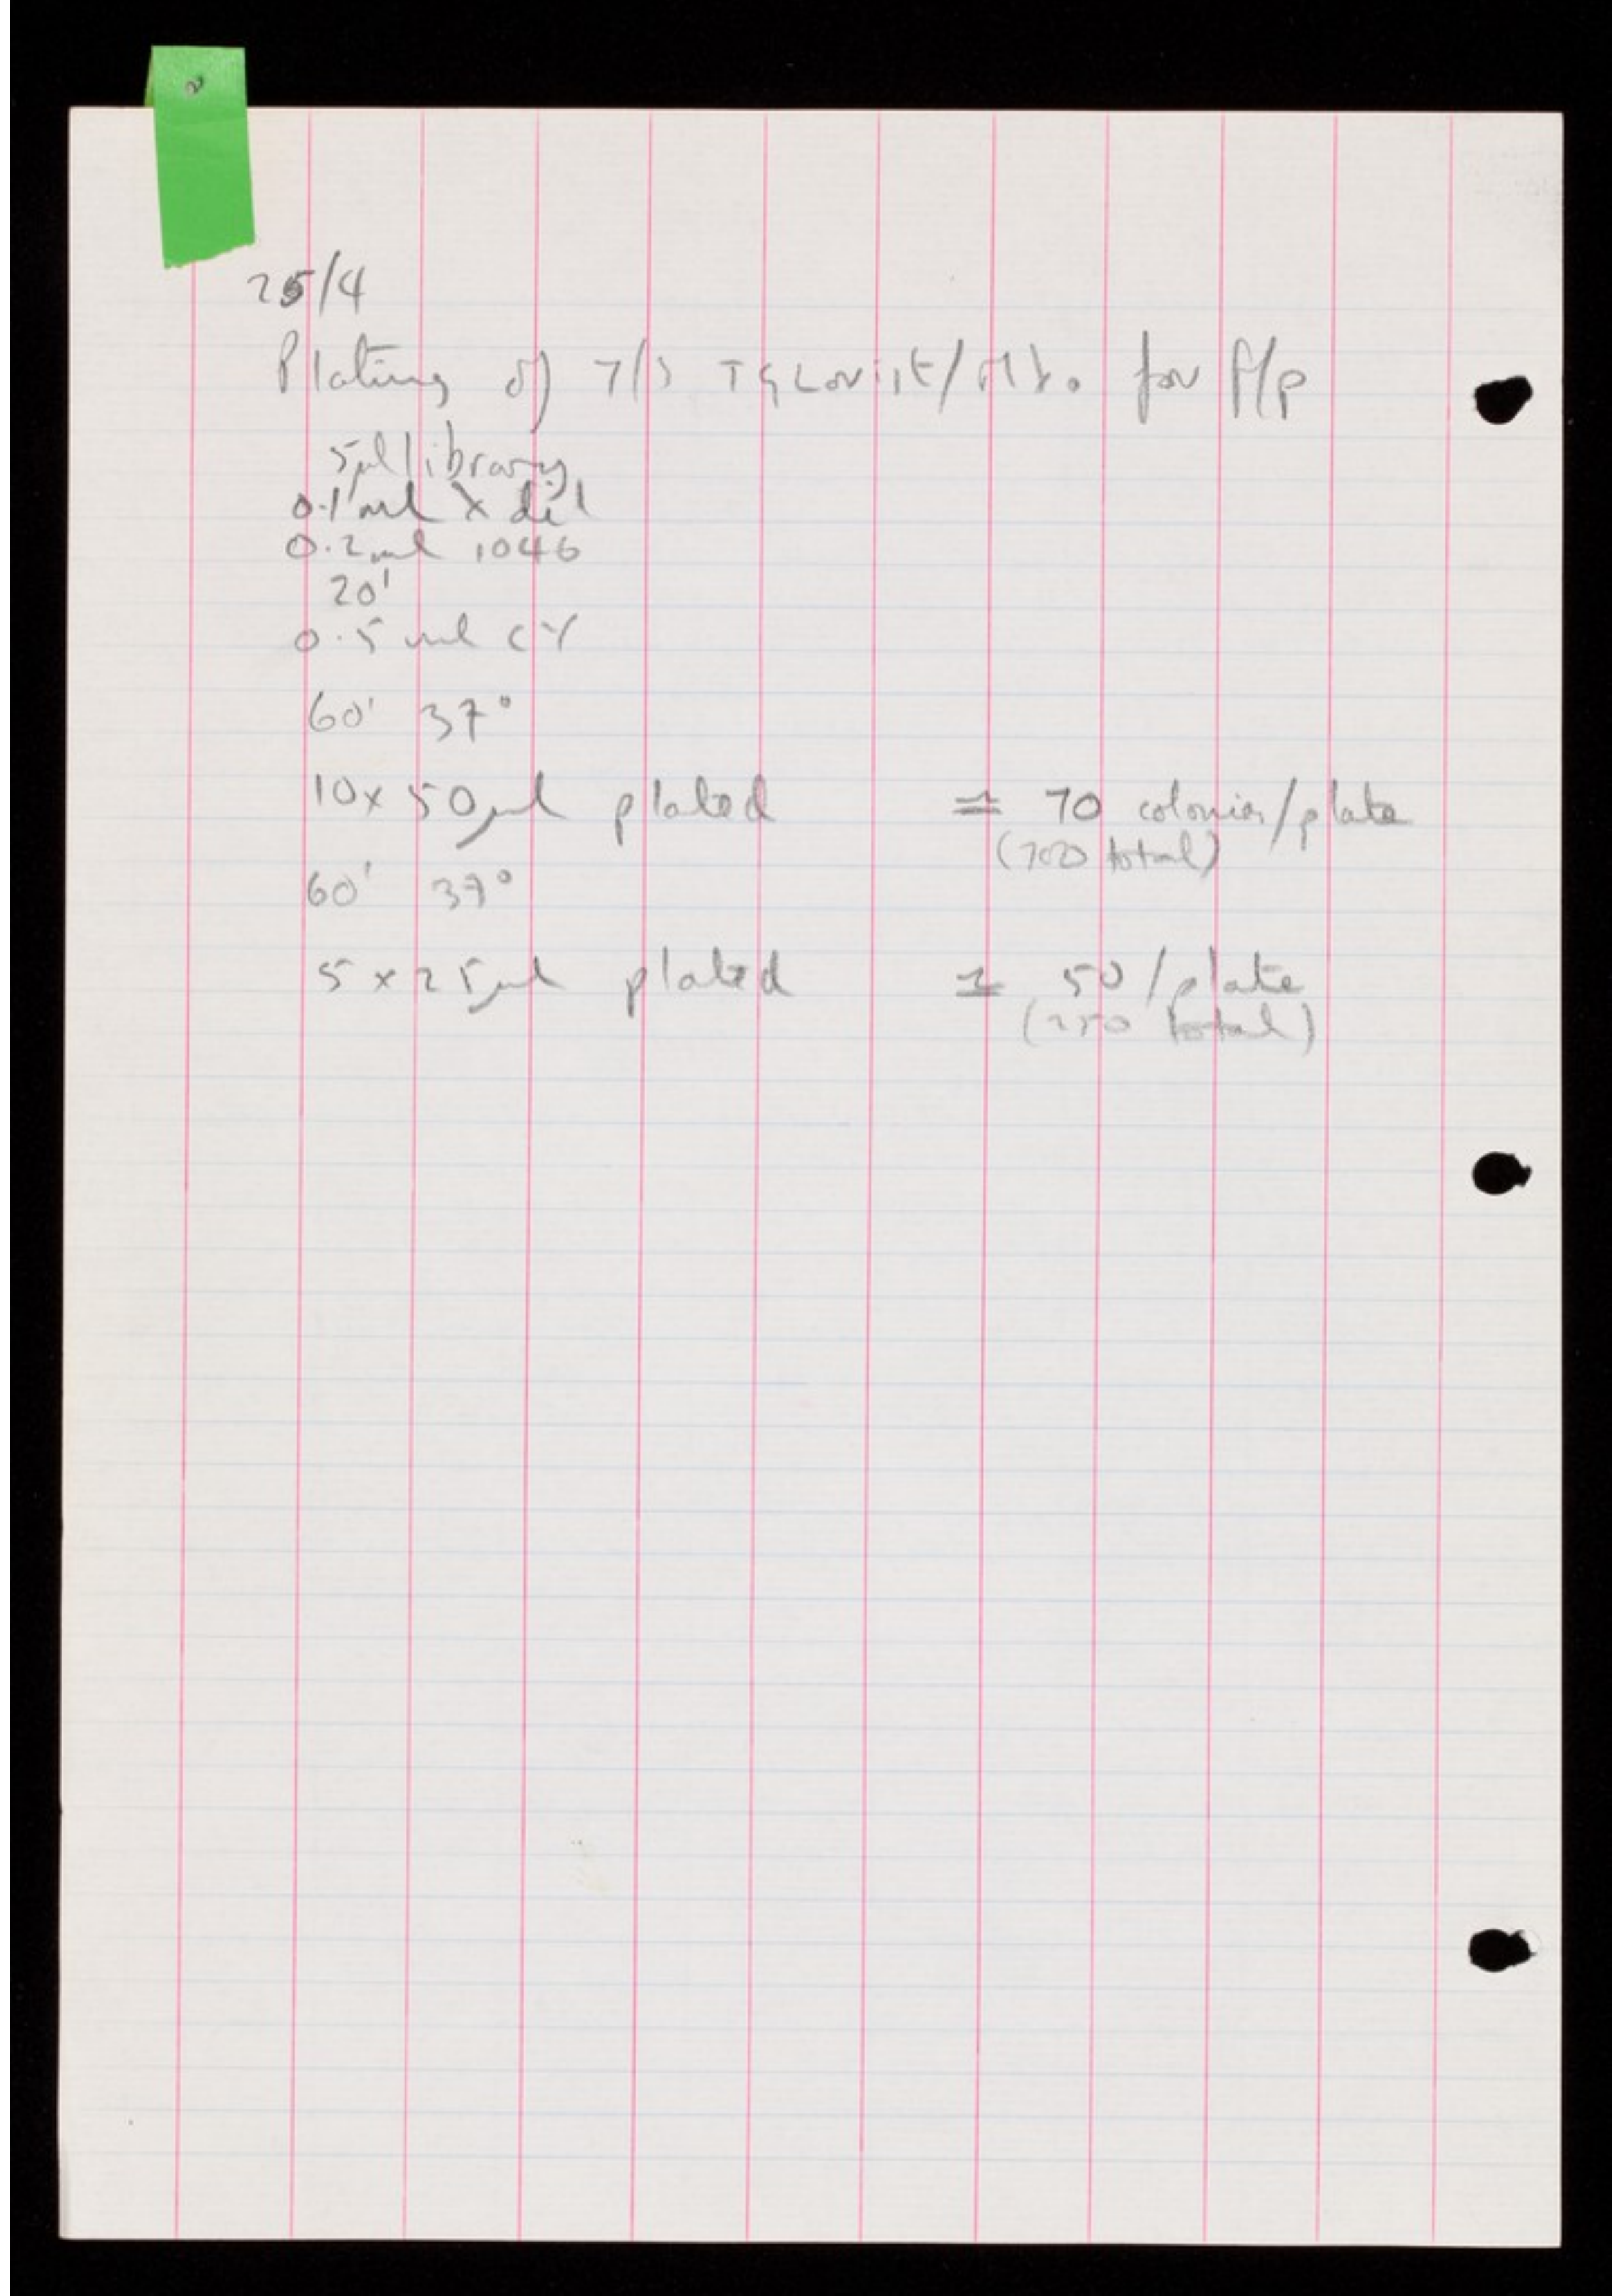 25/4
Plating of 7/3 TG Lorist/Mb. for f/p
5μl library
0.1 ml λ dil
0.2ml 1046
20'
0.5 ml CY
60' 37°
10x 50μl plated = 70 colonies/plate
(700 total)
60' 37°
5 x 25μl plated = 50/plate
(250 total)